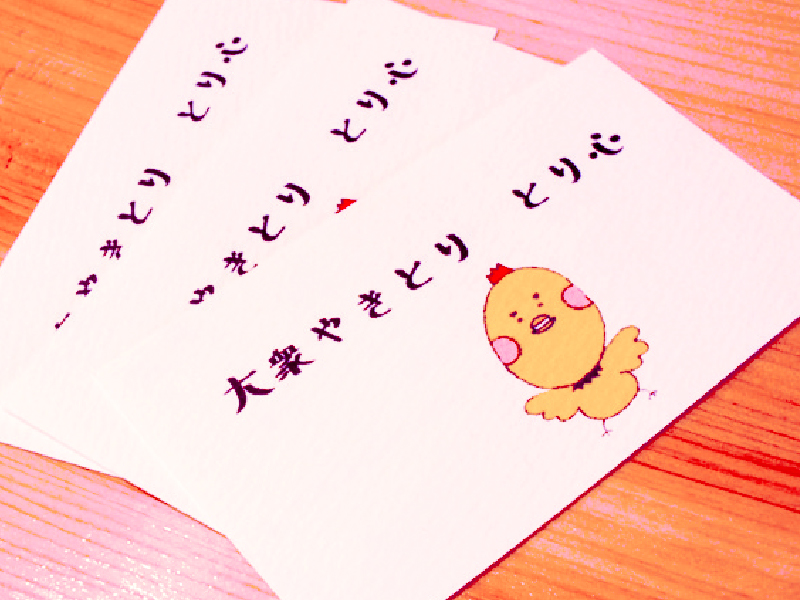 大衆やきとり とり心
やきとり とり心
やきとり とり心